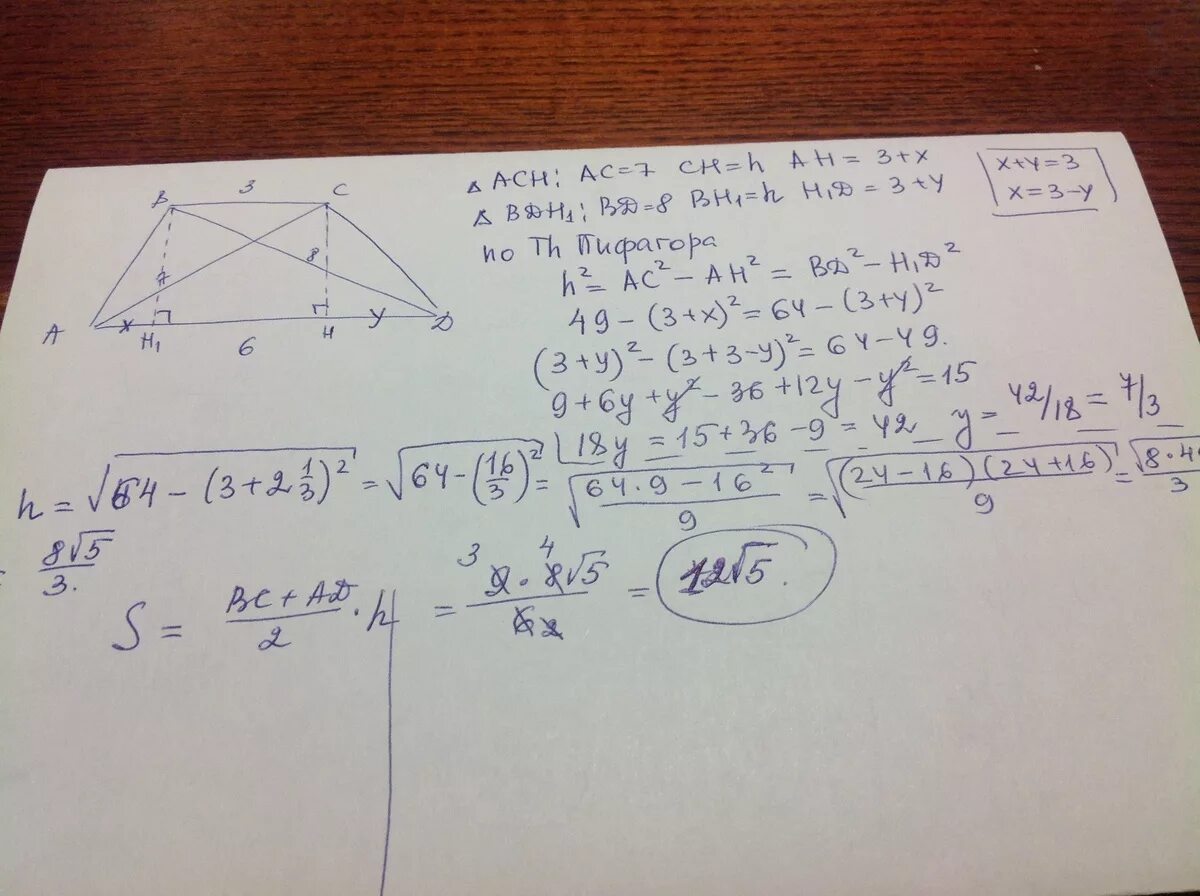 B 3 C
7 8
A x H₁ 6 H y D
△ ACH: AC=7 CH=h AH = 3+x
△ BDH₁: BD=8 BH₁=h H₁D = 3+y
x+y=3
x=3-y
по Th Пифагора
h² = AC² - AH² = BD² - H₁D²
49 - (3+x)² = 64 - (3+y)²
(3+y)² - (3+3-y)² = 64-49.
9+6y+y² - 36+12y - y² = 15
18y = 15+36-9 = 42 y = 42/18 = 7/3
h = √(64 - (3+2 1/3)²) = √(64 - (16/3)²) = √((64·9 - 16²)/9) = √((24-16)(24+16)/9) = √8·4/3
= 8√5/3.
S = (BC + AD)/2 · h = 9·8√5/6 2 3 4 = 12√5.